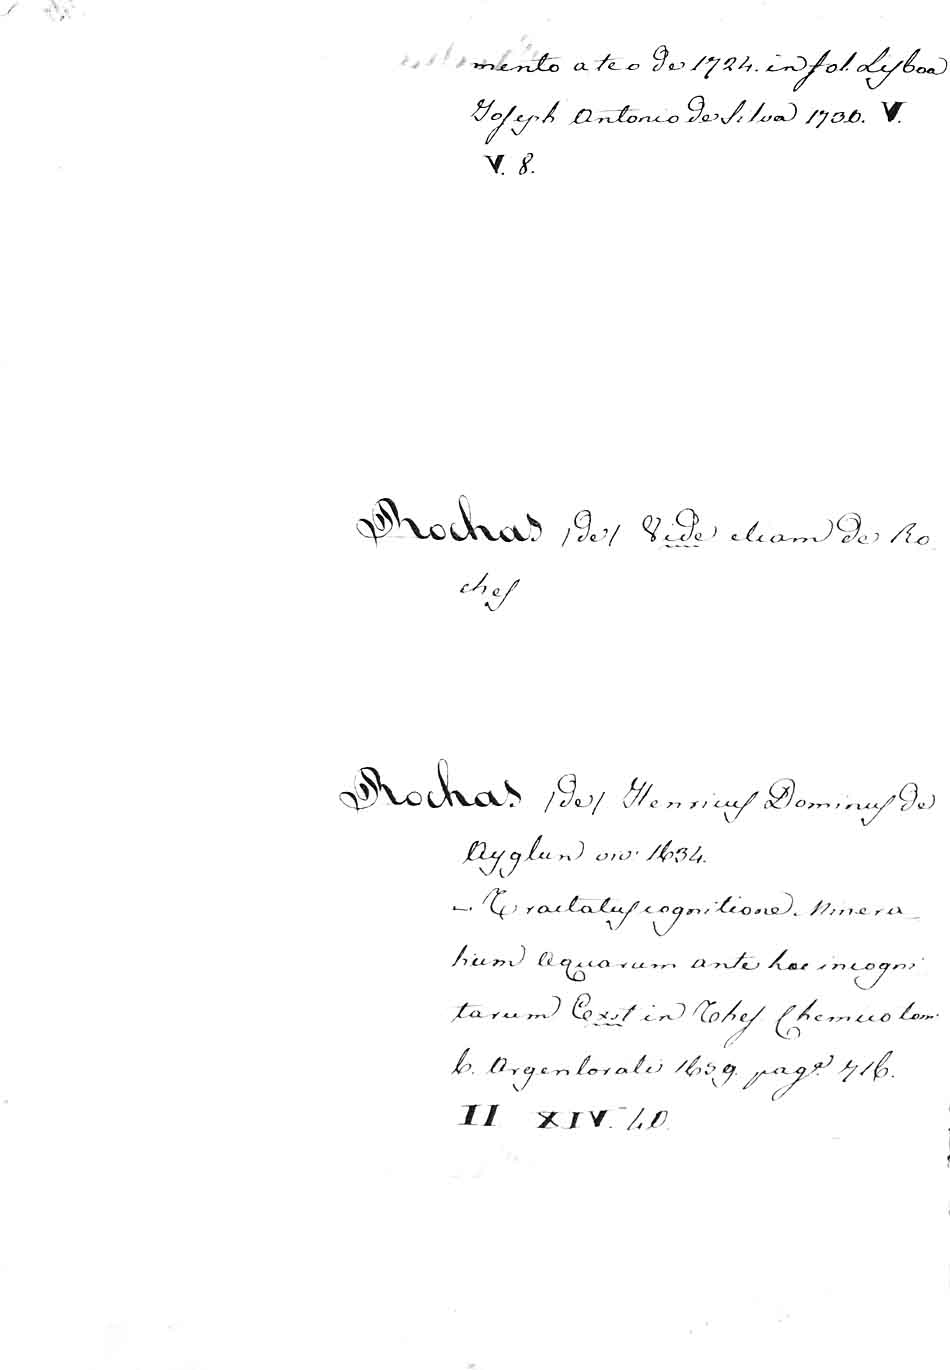 mento ate o de 1724. in fol. Lisboa
Joseph Antonio de Silva 1730. V.
V. 8.
Rochas (de) Vide etiam de Ro
ches
Rochas (de) Henricus Dominus de
Ayglun viv. 1634.
— Tractatus cognitione Minera
lium Aquarum ante hac incogni
tarum Exst in Thes Chemico tom.
6. Argentorati 1659. pag. 716.
II XIV. 40.